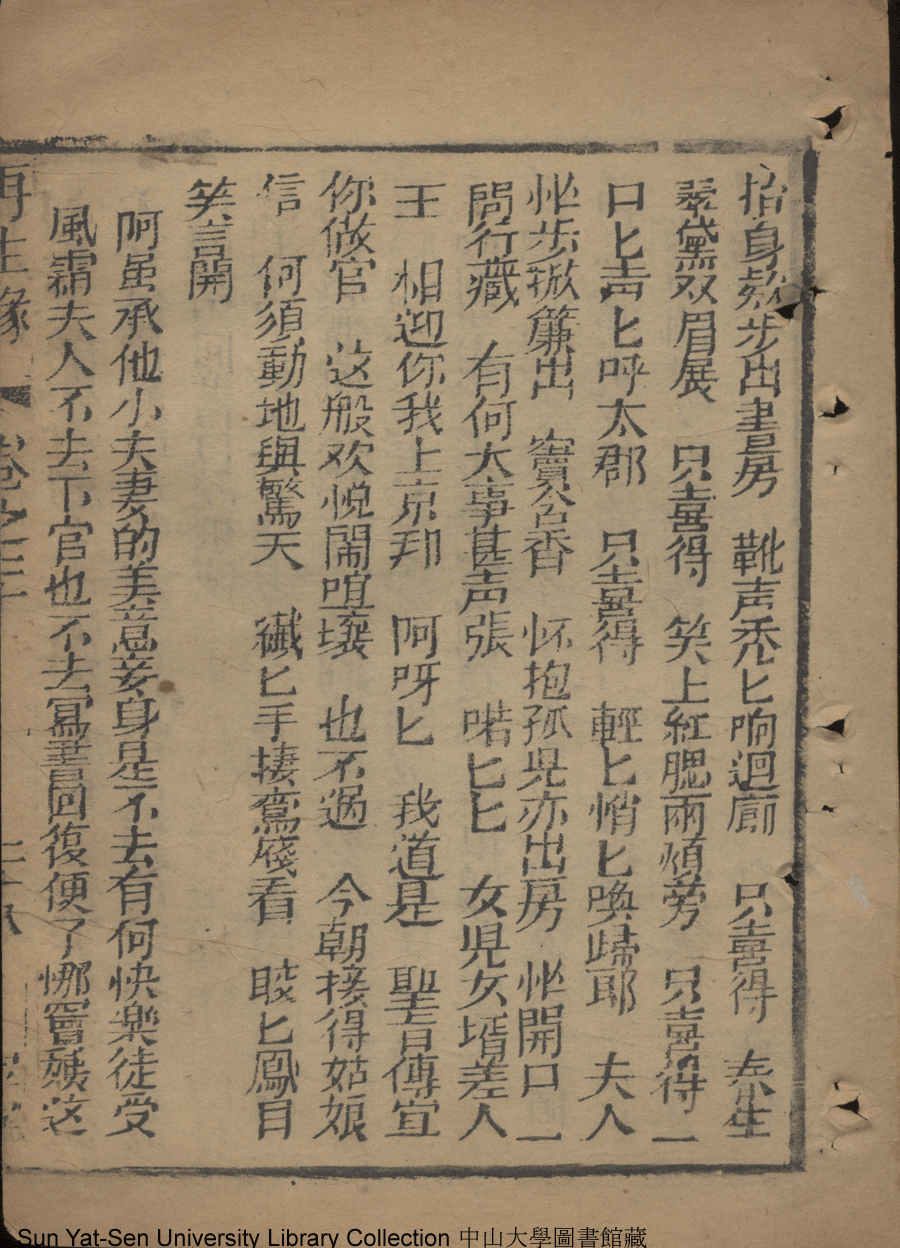 抬身欵步出書房　靴声秃匕响迴廊　只喜得　春生
翠黛双眉展　只喜得　笑上紅腮兩頰旁　只喜得　一
口匕声匕呼太郡　只喜得　輕匕悄匕喚歸耶　夫人
忙步掀簾出　竇谷香　怀抱孤児亦出房　忙開口　一
問行藏　有何大事甚声張　喏匕匕　女児女壻差人
王　相迎你我上京邦　阿呀匕　我道是　聖旨傳宣
你做官　这般欢悦鬧喧壤　也不過　今朝接得姑娘
信　何須動地與驚天　纎匕手接鸞牋看　睃匕鳳目
笑言開
阿虽承他小夫妻的美意妾身是不去有何快樂徒受
風霜夫人不去下官也不去冩書囬復便了哪竇姨这
再生緣　卷之三
Sun Yat-Sen University Library Collection 中山大學圖書館藏